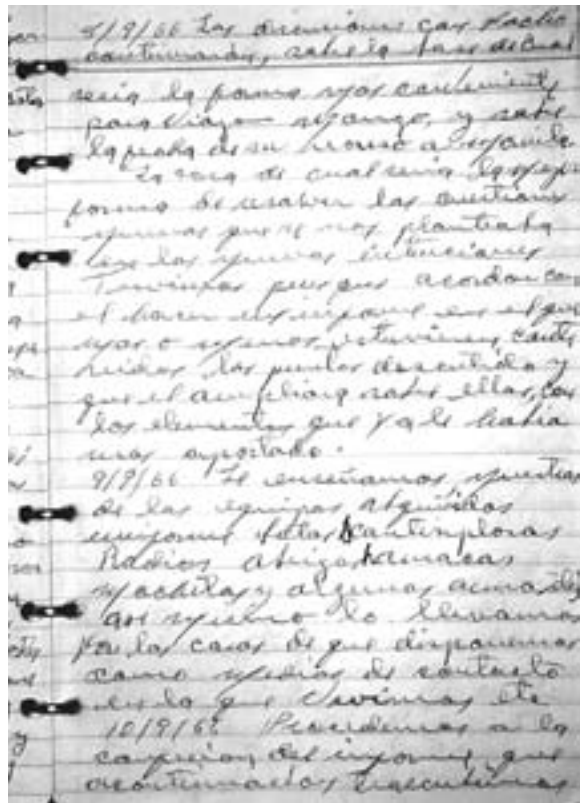 8/9/66 Las discuciones con Pacho
continuaron, sobre la base de Cual
seria la forma mas conveniente
para Viaje Mongo, y sobre
la fecha de su
la cosa de cual seria la mejor
forma de resolver las cuestiones
nuevas que se nos planteaba
en las nuevas intenciones
Tuvimos pues que acordar con
el hacer un informe en el que
mas o menos estuviera conte
nidos los puntos descutidos y
que el ampliara sobre ellos, con
los elementos que ya le habia
mos aportado.
9/9/66 Le enseñamos, muestras
de los equipos adquiridos
uniforme botas cantimploras
Radios abrigo hamacas
mochilas y algunas armas
asi mismo lo llevamos
por las casas de que disponemos
como medios de contacto
en la que vivimos etc
10/9/66 Procedimos a la
del informe que
a continuacion